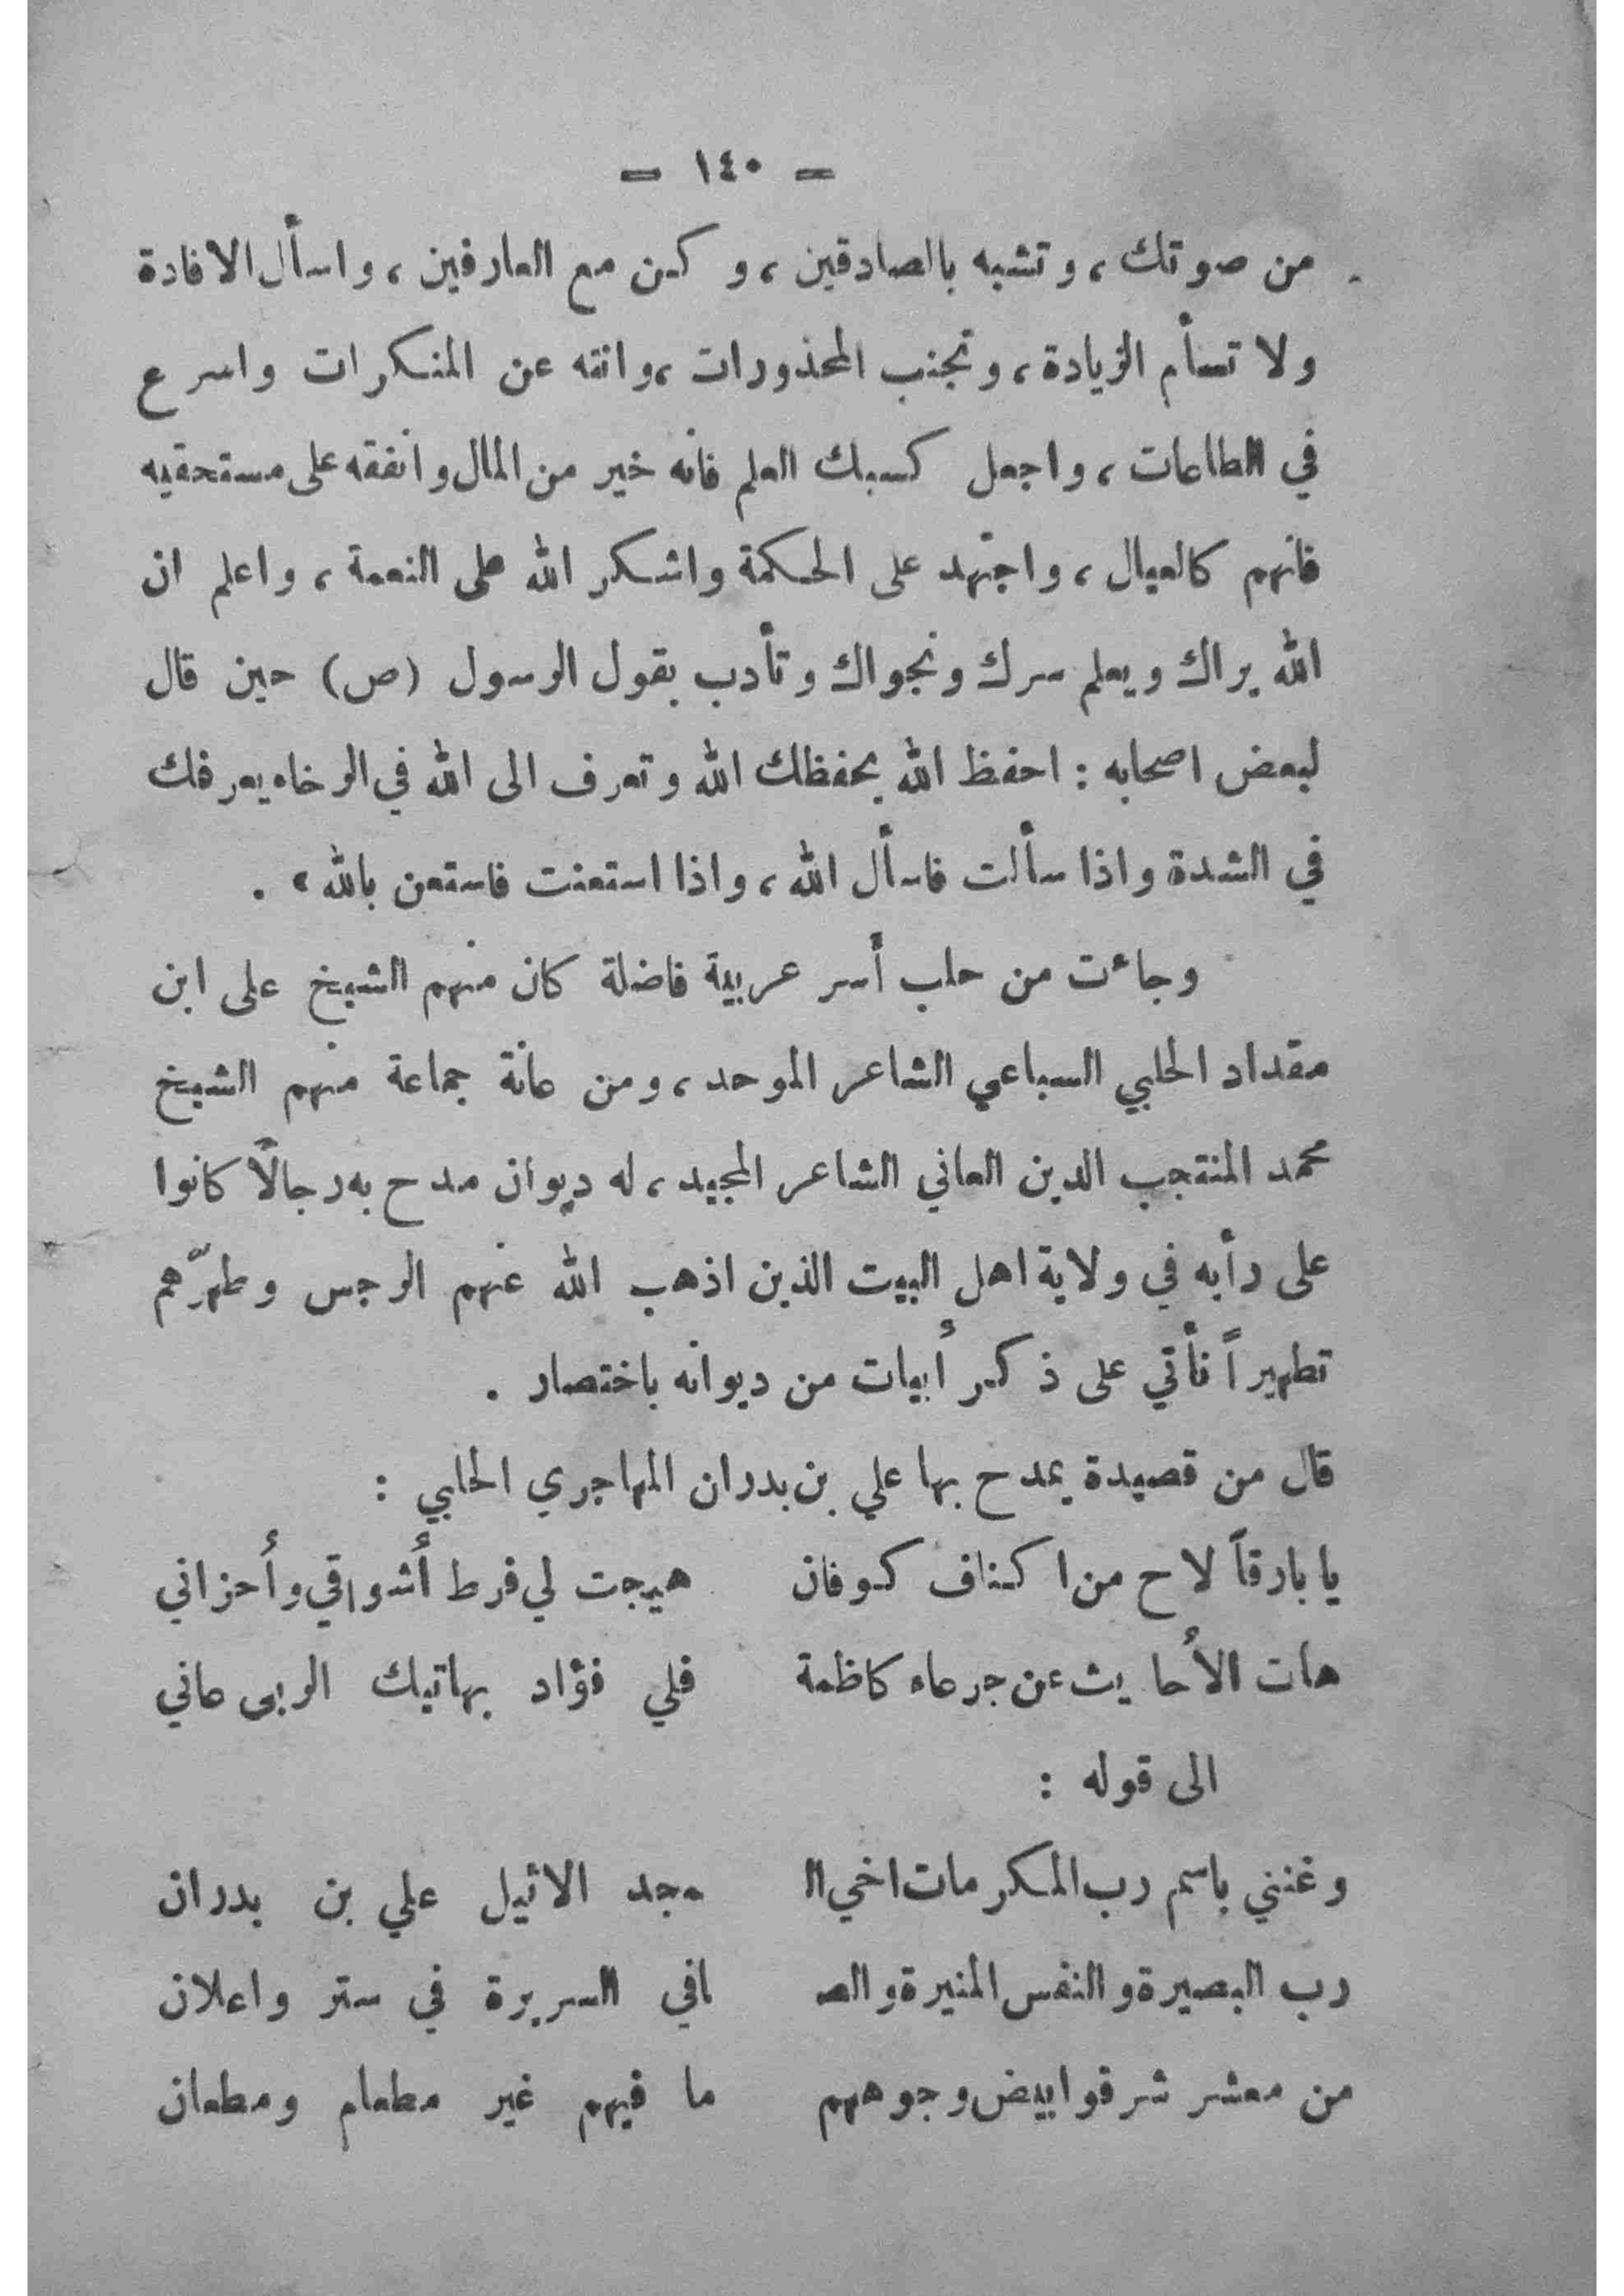 = ١٤٠ =
من صوتك ، وتشبه بالصادقين ، و كن مع العارفين ، واسأل الافادة
ولا تسأم الزيادة ، وتجنب المحذورات ،وانته عن المنكرات واسرع
في الطاعات ، واجعل كسبك العلم فانه خير من المال وانفقه على مستحقيه
فانهم كالعيال ، واجتهد على الحكمة واشكر الله على النعمة ، واعلم ان
الله يراك ويعلم سرك ونجواك وتأدب بقول الرسول (ص) حين قال
لبعض اصحابه : احفظ الله يحفظك الله وتعرف الى الله في الرخاء يعرفك
في الشدة واذا سألت فاسأل الله ، واذا استعنت فاستعن بالله » .
وجاءت من حلب أسر عربية فاضلة كان منهم الشيخ على ابن
مقداد الحلبي السباعي الشاعر الموحد ، ومن عانة جماعة منهم الشيخ
محمد المنتجب الدين العاني الشاعر المجيد ، له ديوان مدح به رجالاً كانوا
على رأيه في ولاية اهل البيت الذين اذهب الله عنهم الرجس وطهرّهم
تطهيراً نأتي على ذكر أبيات من ديوانه باختصار .
قال من قصيدة يمدح بها علي بن بدران المهاجري الحلبي :
يا بارقاً لاح من اكناف كوفان هيجت لي فرط أشواقي وأحزاني
هات الأحايث عن جرعاء كاظمة فلي فؤاد بهاتيك الربى عاني
الى قوله :
وغنني باسم رب المكرمات اخي الـ ـمجد الاثيل علي بن بدران
رب البصيرة والنفس المنيرة والصـ ـافي السريرة في ستر واعلان
من معشر شرفوا بيض وجوههم ما فيهم غير مطعام ومطعان